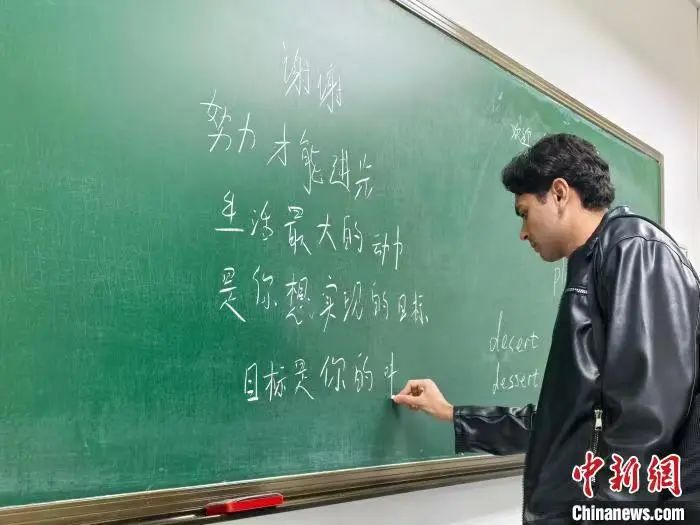 谢谢
努力才能进步
生活最大的动力
是你想实现的目标
目标是你的
欢迎
desert
dessert
中新网
Chinanews.com